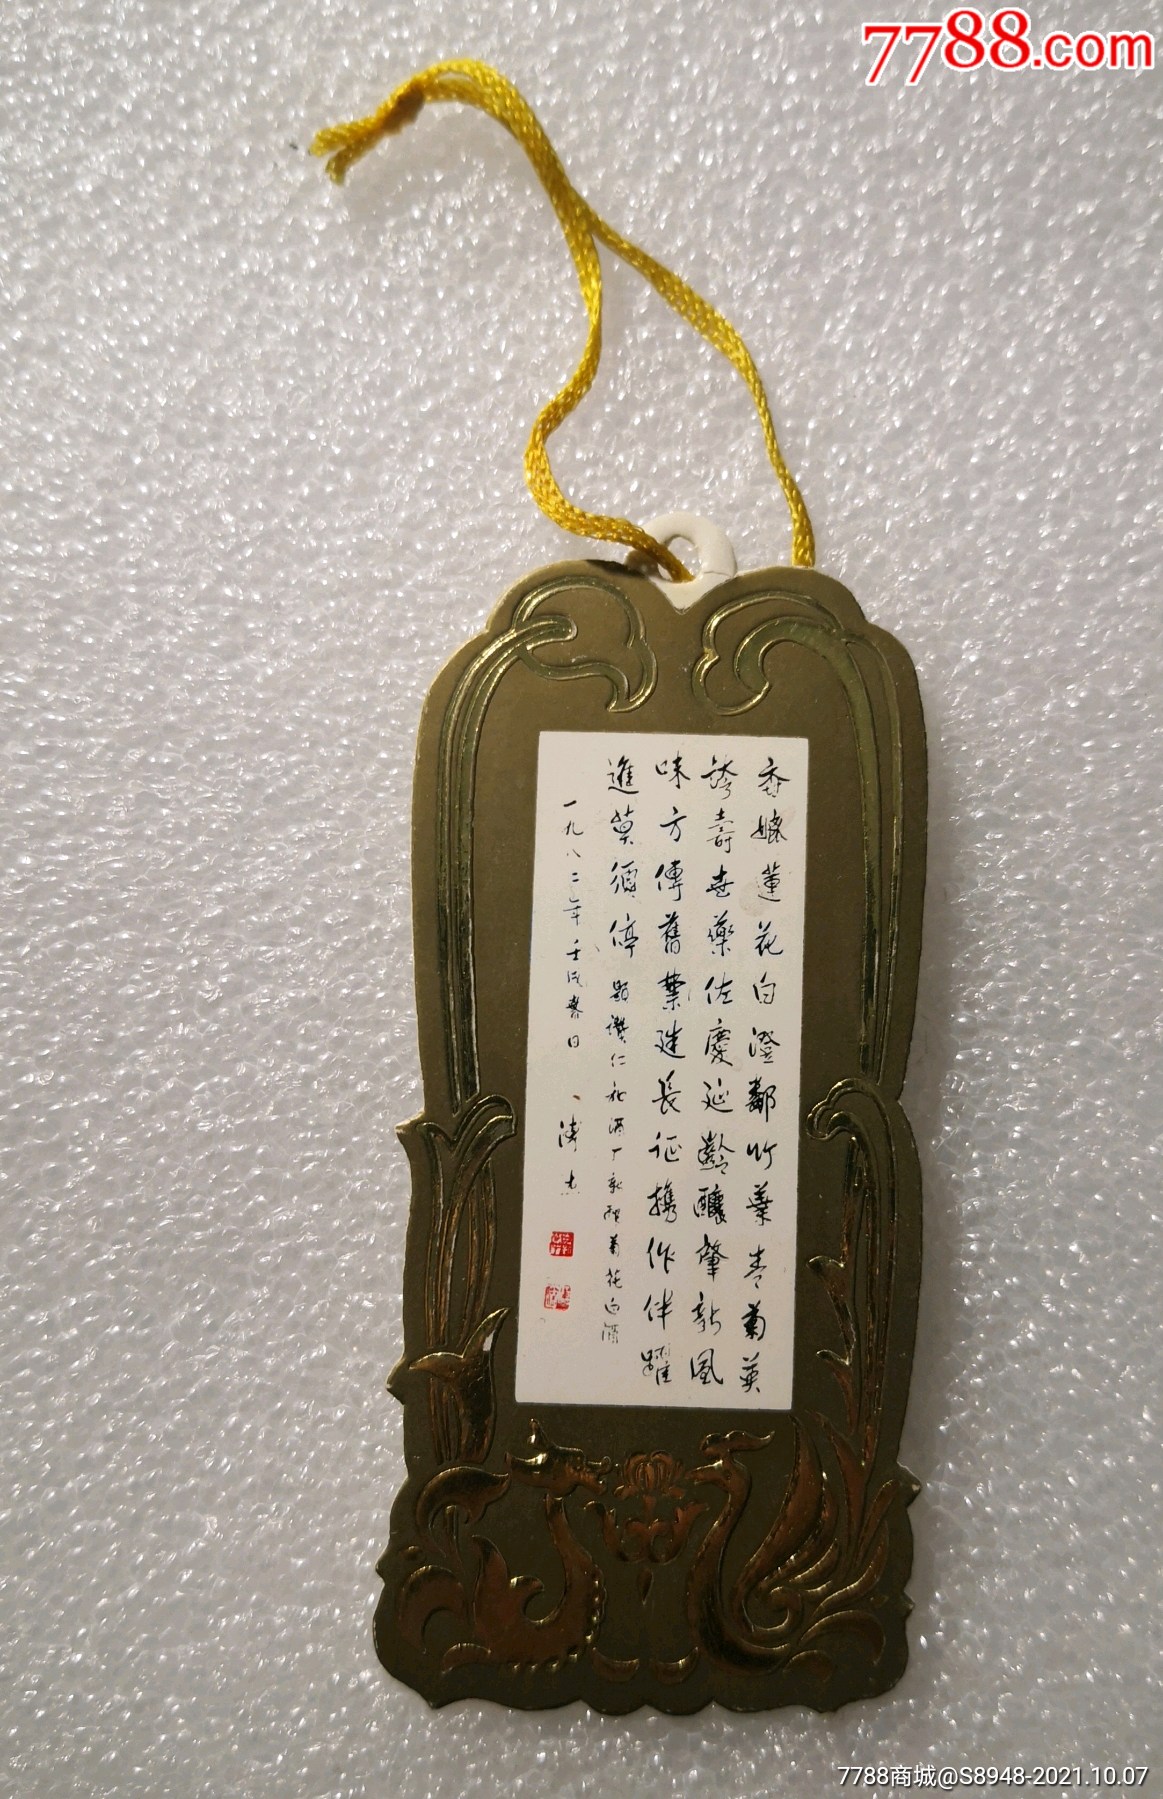 7788.com
香媲蓮花白澄鄰竹葉青菊英
誇壽世藥佐慶延齡釀肇新風
味方傳舊禁廷長征携作伴躍
進莫須停 題讚仁和酒厂新釀菊花白酒
一九八二年壬戌春日 溥杰
7788商城@S8948-2021.10.07